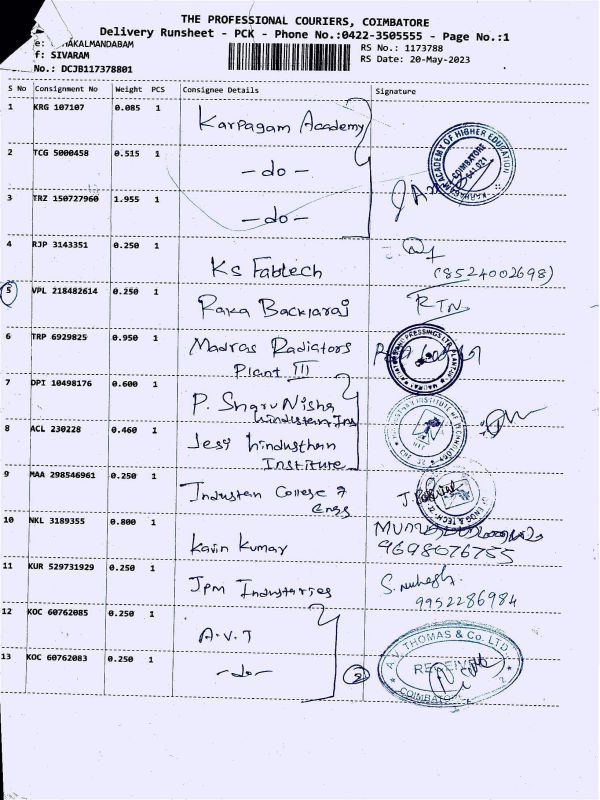 THE PROFESSIONAL COURIERS, COIMBATORE
Delivery Runsheet - PCK - Phone No.:0422-3505555 - Page No.:1
e: AKALMANDABAM RS No.: 1173788
f: SIVARAM RS Date: 20-May-2023
No.: DCJB117378801
S No Consignment No Weight PCS Consignee Details Signature
1 KRG 107107 0.085 1 Karpagam Academy
ACADEMY OF HIGHER EDUCATION COIMBATORE 641 021
2 TCG 5000458 0.515 1 -do-
3 TRZ 150727960 1.955 1 -do-
4 RJP 3143351 0.250 1 KS Fabtech (8524002698)
5 VPL 218482614 0.250 1 Raka Backiaraj RTN
6 TRP 6929825 0.950 1 Madras Radiators
Plant III
7 DPI 10498176 0.600 1 P. Sharu Nisha
Hindustan Ins
8 ACL 230228 0.460 1 Jesi hindusthan
Institute
INSTITUTE OF TECHNOLOGY
9 MAA 298546961 0.250 1 Industan College of
Engg
10 NKL 3189355 0.800 1 Kavin Kumar 9698076755
11 KUR 529731929 0.250 1 Jpm Industaries 9952286984
12 KOC 60762085 0.250 1 A.V.T
13 KOC 60762083 0.250 1 -do- 2
A.V. THOMAS & Co. LTD. RECEIVED COIMBATORE